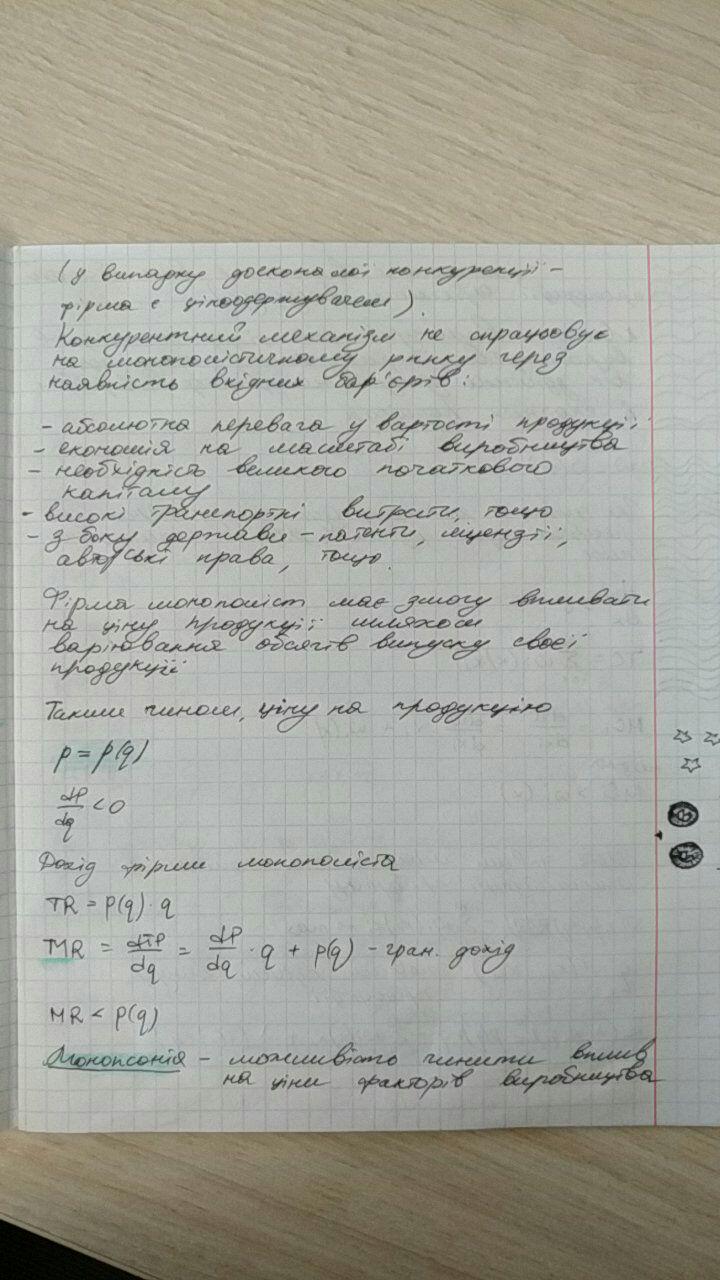 (у випадку досконалої конкуренції –
фірма є ціноодержувачем).
Конкурентний механізм не спрацьовує
на монополістичному ринку через
наявність вхідних бар'єрів:
- абсолютна перевага у вартості продукції
- економія на масштабі виробництва
- необхідність великого початкового
капіталу
- високі транспортні витрати, тощо
- з боку держави – патенти, ліцензії,
авторські права, тощо.
Фірма монополіст має змогу впливати
на ціну продукції шляхом
варіювання обсягів випуску своєї
продукції
Таким чином, ціну на продукцію
p = p(q)
dp/dq < 0
Дохід фірми монополіста
TR = p(q) · q
MR = dTP/dq = dP/dq · q + p(q) – гран. дохід
MR < p(q)
Монопсонія – можливість чинити вплив
на ціни факторів виробництва